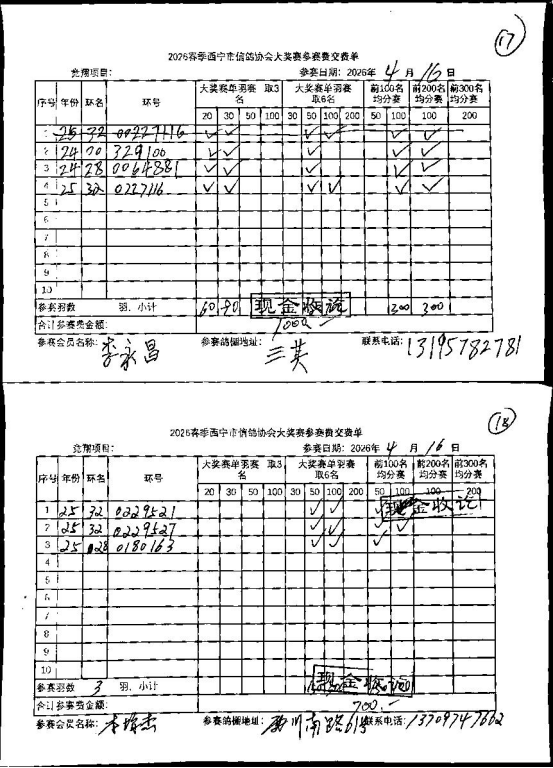 17
2026春季西宁市信鸽协会大奖赛参赛费交费单
竞翔项目： 参赛日期：2026年 4 月 16 日
序号 年份 环名 环号 大奖赛单羽赛 取3名 大奖赛单羽赛 取6名 前100名均分赛 前200名均分赛 前300名均分赛
20 30 50 100 30 50 100 200 50 100 100 200
1 25 32 00227116 ✓ ✓ ✓ ✓ ✓ ✓
2 24 20 329100 ✓ ✓ ✓ ✓ ✓
3 24 28 0064881 ✓ ✓ ✓ ✓ ✓
4 25 32 0227116 ✓ ✓ ✓ ✓ ✓ ✓
5
6
7
8
9
10
参赛羽数 羽，小计 60 90 现金收讫 300 300
合计参赛费金额： 1000.—
参赛会员名称：李永昌 参赛鸽棚地址：三英 联系电话：13195782781
18
2026春季西宁市信鸽协会大奖赛参赛费交费单
竞翔项目： 参赛日期：2026年 4 月 16 日
序号 年份 环名 环号 大奖赛单羽赛 取3名 大奖赛单羽赛 取6名 前100名均分赛 前200名均分赛 前300名均分赛
20 30 50 100 30 50 100 200 50 100 100 200
1 25 32 0229521 ✓ ✓ ✓ 现金收讫
2 25 32 0229527 ✓ ✓ ✓ ✓
3 25 028 0180163 ✓ ✓ ✓
4
5
6
7
8
9
10
参赛羽数 3 羽，小计 现金收讫
合计参赛费金额： 700.—
参赛会员名称：李 杰 参赛鸽棚地址： 川南路61号 联系电话：13709747662